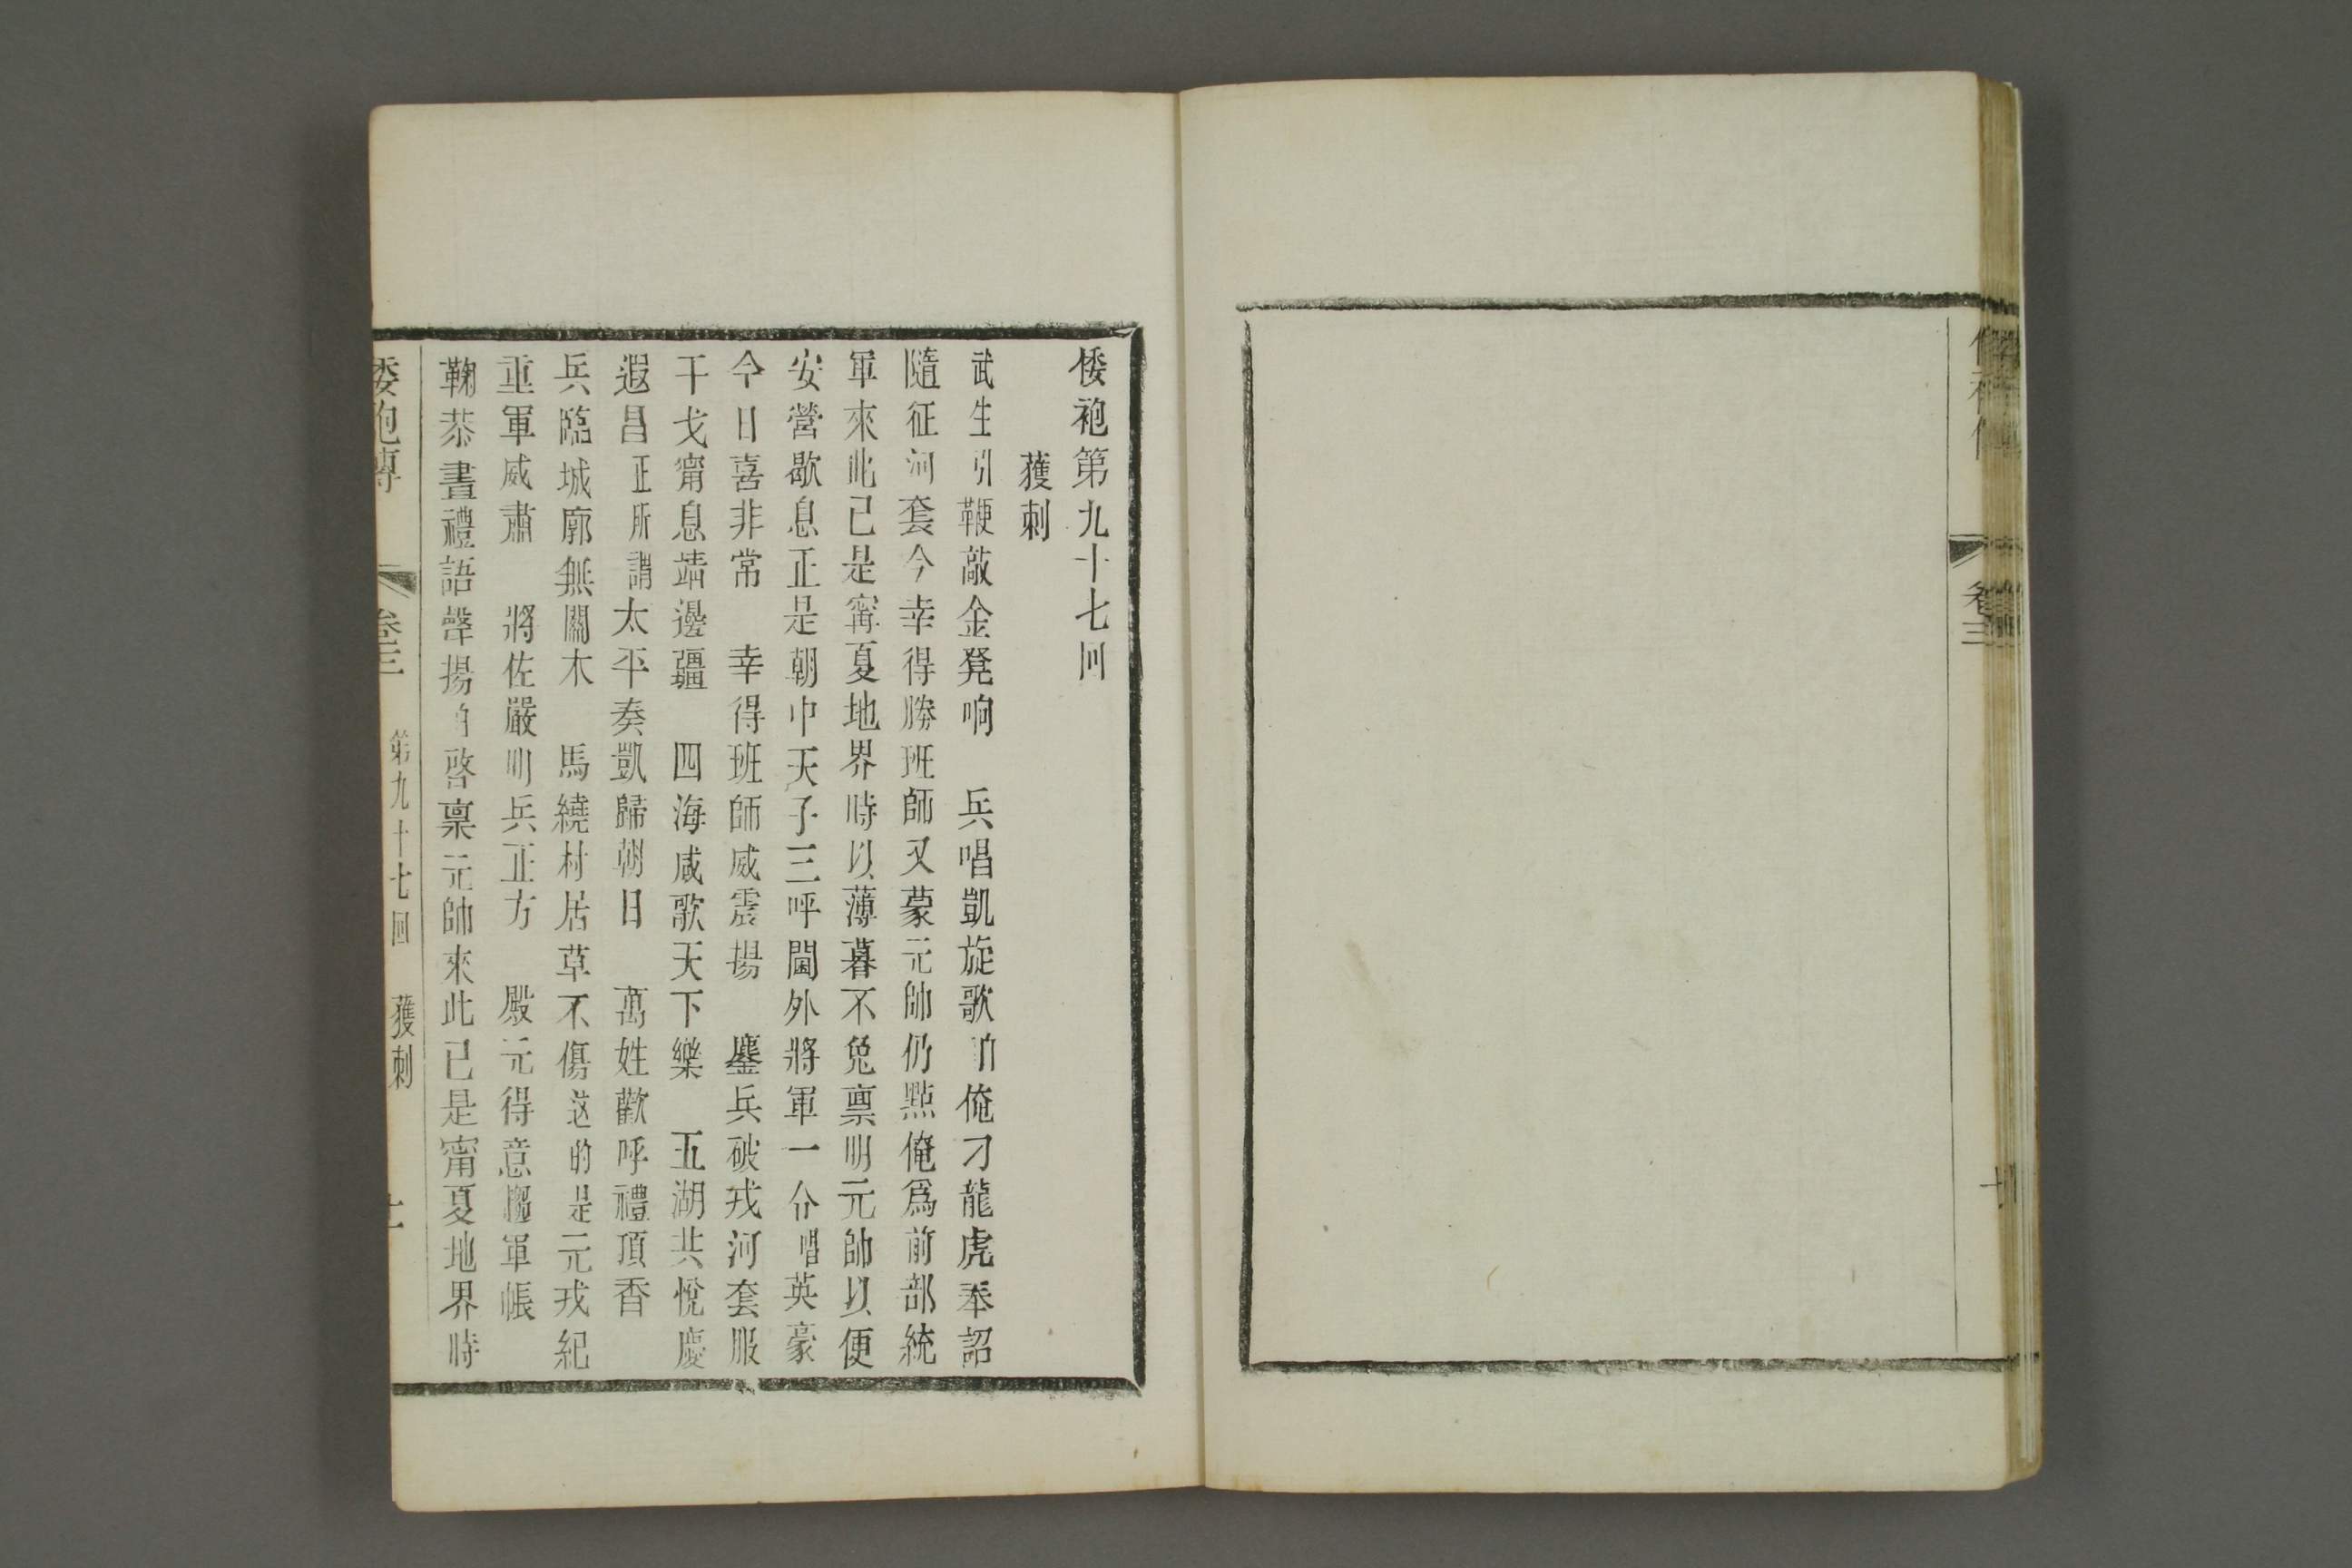 卷三
倭袍第九十七回
獲刺
武生引鞭敲金凳响　兵唱凱旋歌咱俺刁龍虎奉詔
隨征河套今幸得勝班師又蒙元帥仍點俺爲前部統
軍來此已是甯夏地界時以薄暮不免禀明元帥以便
安營歇息正是朝中天子三呼閫外將軍一令唱英豪
今日喜非常　幸得班師威震揚　鏖兵破戎河套服
干戈甯息靖邊疆　四海咸歌天下樂　五湖共悅慶
遐昌正所謂太平奏凱歸朝日　萬姓歡呼禮頂香
兵臨城廓無關木　馬繞村居草不傷这的是元戎紀
重軍威肅　將佐嚴明兵正方　殿元得意軍帳
鞠恭書禮語聲揚白啓禀元帥來此已是甯夏地界時
倭袍傳　卷三　第九十七回　獲刺